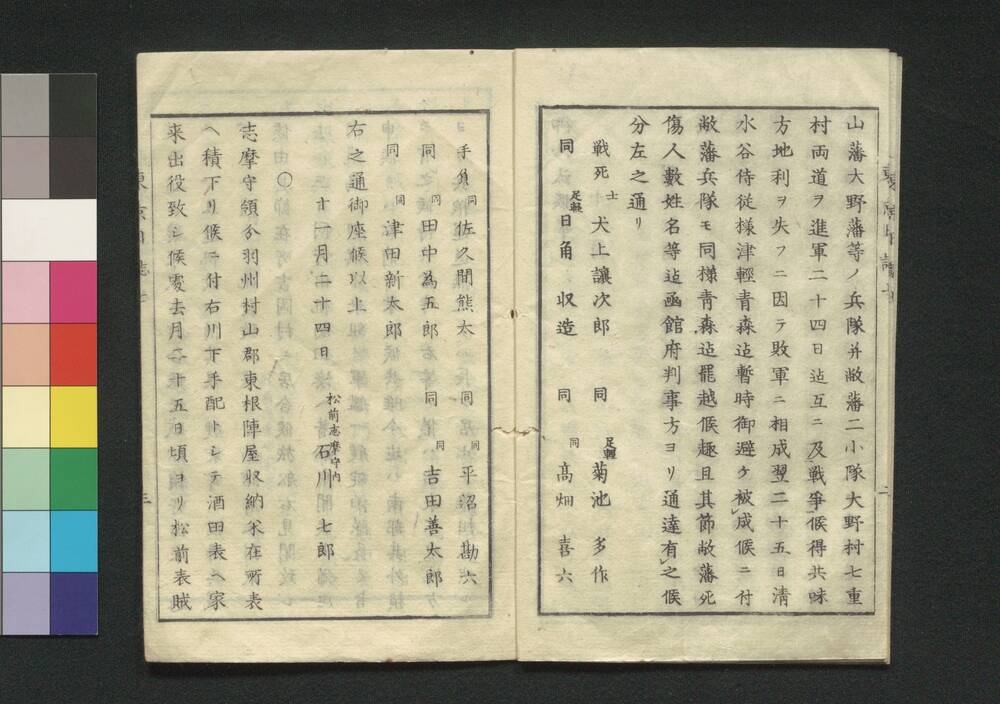 山藩大野藩等ノ兵隊并敝藩二小隊大野村七重
村両道ヲ進軍二十四日迠互ニ及戦争候得共味
方地利ヲ失フニ因テ敗軍ニ相成翌二十五日清
水谷侍従様津輕青森迠暫時御避ケ被成候ニ付
敝藩兵隊モ同様青森迠罷越候趣且其節敝藩死
傷人數姓名等迠函館府判事方ヨリ通達有之候
分左之通リ
戦死 士 犬上讓次郎 同 足輕 菊池 多作
同 足輕 日角 収造 同 同 髙畑 喜六
手負 同 佐久間熊太 同 同 平沼勘六
同 同 田中為五郎 同 同 吉田善太郎
同 同 津田新太郎
右之通御座候以上
十一月二十四日 松前志摩守内 石川七郎
〇
志摩守領分羽州村山郡東根陣屋収納米在所表
ヘ積下リ候ニ付右川下手配トシテ酒田表ヘ家
来出役致シ候處去月二十五日頃ヨリ松前表賊
三